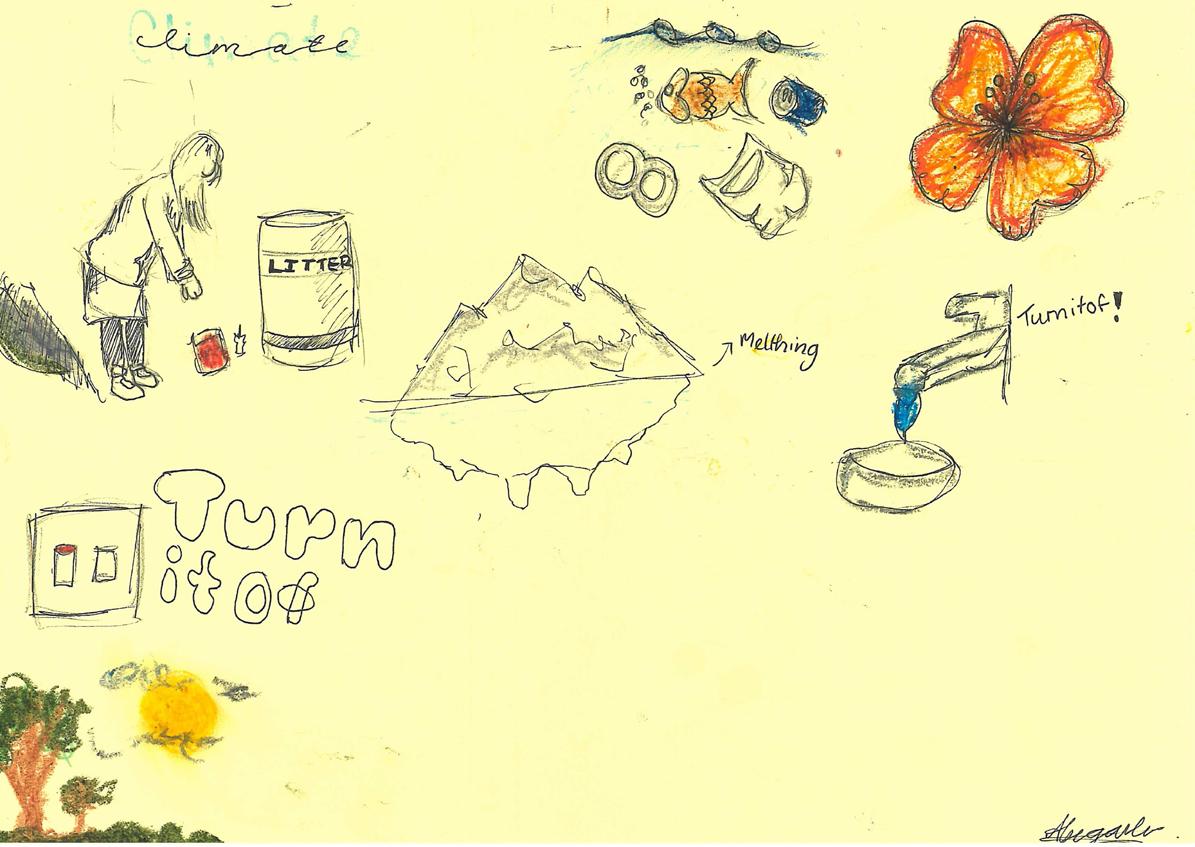 Climate
LITTER
Melthing
Turnitof!
Turn
it of